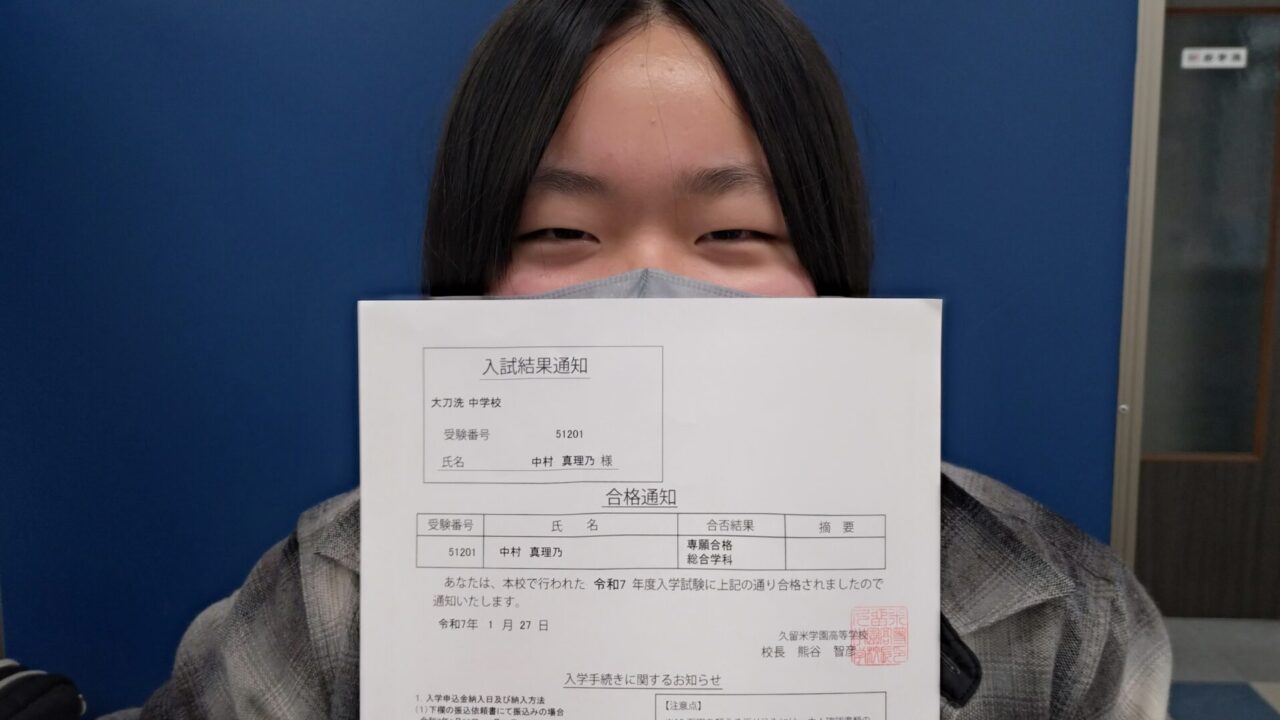 入試結果通知
大刀洗 中学校
受験番号 51201
氏名 中村 真理乃 様
合格通知
受験番号 氏 名 合否結果 摘 要
51201 中村 真理乃 専願合格
総合学科
あなたは、本校で行われた 令和7 年度入学試験に上記の通り合格されましたので
通知いたします。
令和7年 1 月 27 日
久留米学園高等学校
校長 熊谷 智彦
入学手続きに関するお知らせ
1. 入学申込金納入日及び納入方法
(1)下欄の振込依頼書にて振込みの場合
【注意点】